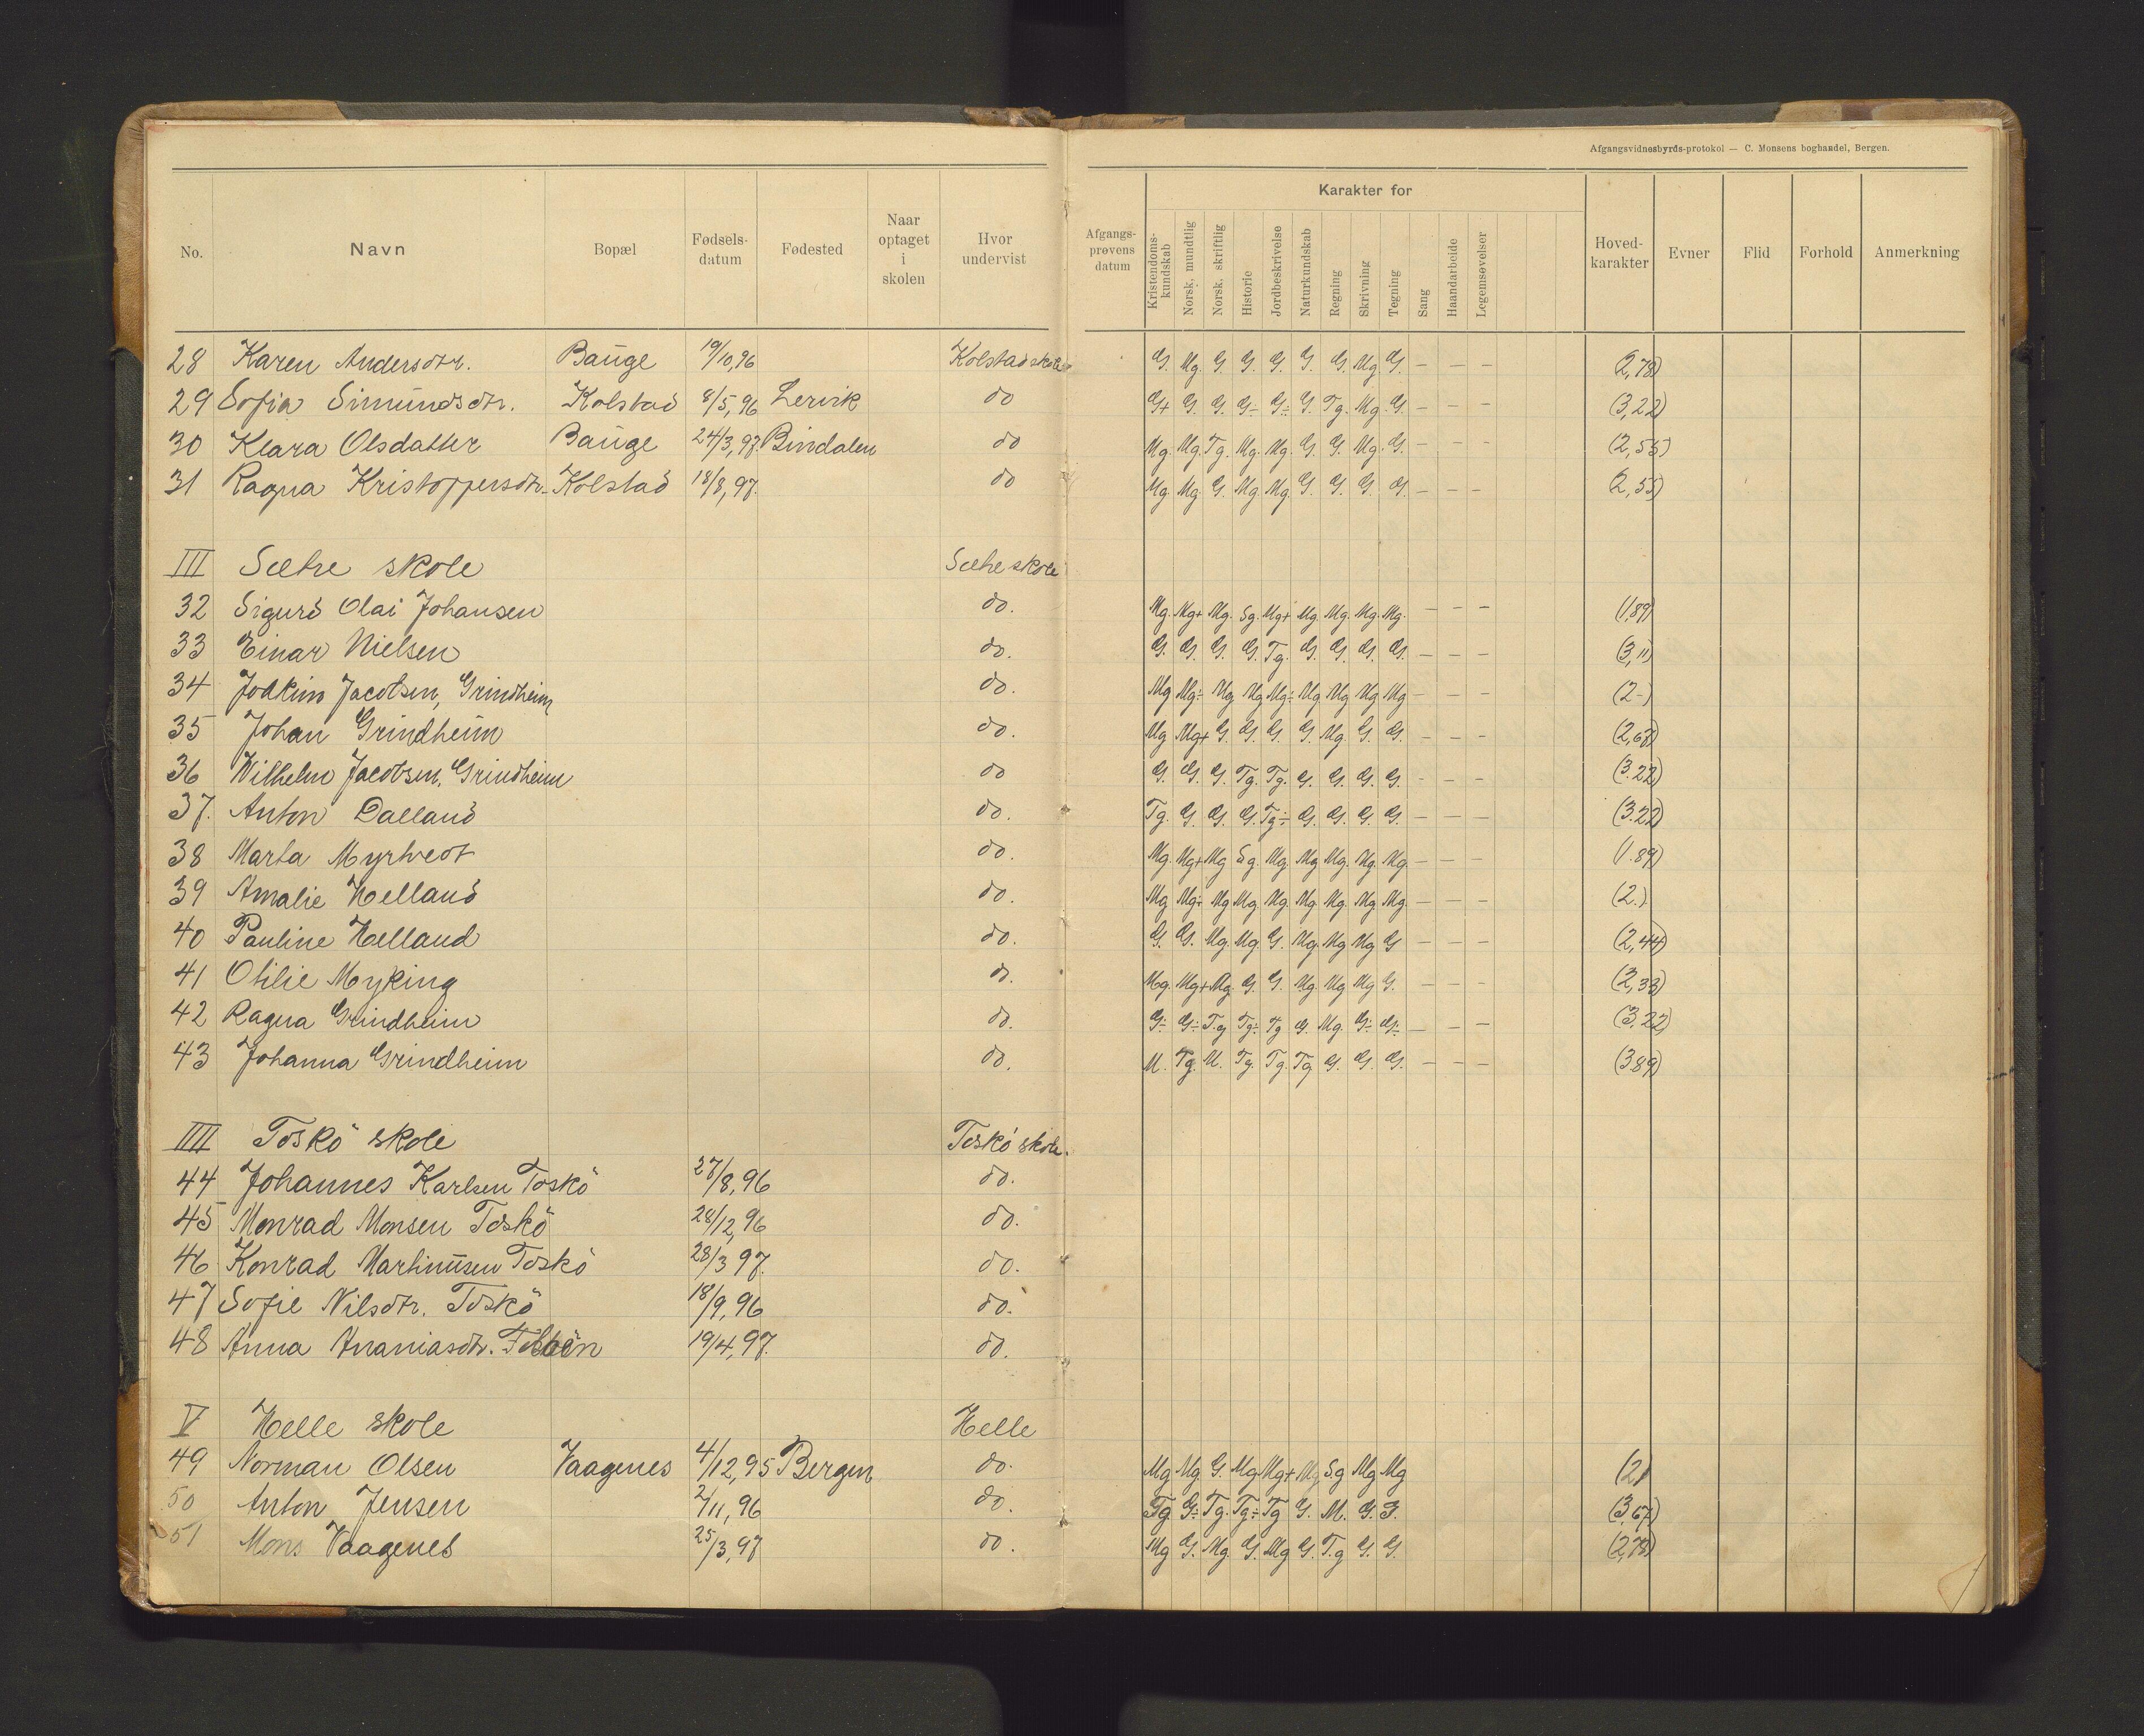 Afgangsvidnesbyrds-protokol — C. Monsens boghandel, Bergen.
No. Navn Bopæl Fødselsdatum Fødested Naar optaget i skolen Hvor undervist Afgangsprøvens datum Karakter for Kristendomskundskab Norsk, mundtlig Norsk, skriftlig Historie Jordbeskrivelse Naturkundskab Regning Skrivning Tegning Sang Haandarbeide Legemsøvelser Hovedkarakter Evner Flid Forhold Anmerkning
28 Karen Andersdtr. Bauge 19/10,96 Kolstad skole G. Mg. G. G. G. G. G. Mg G. — — — (2,78)
29 Sofia Simundsdtr. Kolstad 8/5,96 Lervik do G+ G. G. G÷ G÷ G. Tg. Mg. G. — — — (3,22)
30 Klara Olsdatter Bauge 24/3,97. Bindalen do Mg. Mg. Tg. Mg. Mg. G. G. Mg. G. — — — (2,55)
31 Ragna Kristoffersdtr. Kolstad 18/8,97. do Mg. Mg G. Mg Mg. G. G. G. G. — — — (2,55)
III Sætre skole Sætre skole
32 Sigurd Olai Johansen do. Mg. Mg+ Mg. Sg. Mg+ Mg. Mg. Mg. Mg. — — — (1,89)
33 Einar Nielsen do. G. G. G. G. Tg. G. G. G. G. — — — (3,11)
34 Joakim Jacobsen, Grindheim do. Mg Mg÷ Mg Mg Mg÷ Mg Mg Mg Mg — — — (2-)
35 Johan Grindheim do. Mg Mg+ G. G. G. G. Mg. G. G. — — — (2,67)
36 Wilhelm Jacobsen, Grindheim do G. G. G. Tg. Tg. G. G. G. G. — — — (3.22)
37. Anton Dalland do. Tg. G. G. G. Tg÷ G. G. G. G. — — — (3.22)
38 Marta Myrtvedt do. Mg. Mg+ Mg Sg. Mg. Mg Mg. Mg. Mg. — — — (1.89)
39 Amalie Helland do. Mg Mg÷ Mg Mg Mg. Mg. Mg. Mg Mg. — — — (2.)
40 Pauline Helland do. G. G. Mg. Mg. G. Mg. Mg Mg G — — — (2,44)
41 Otilie Myking do. Mg. Mg+ Mg. G. G. Mg. Mg Mg G. — — — (2,33)
42 Ragna Grindheim do. G÷ G÷ Tg Tg÷ Tg G. Mg. G÷ G÷ — — — (3,22)
43 Johanna Grindheim do. M. Tg. M. Tg. Tg. Tg G. G. G. — — — (3.89)
IIII Toskö skole Toskö skole.
44 Johannes Karlsen Toskö 27/8,96 do.
45 Monrad Monsen Toskö 28/12,96 do.
46 Konrad Martinusen Toskö 28/3 97. do.
47 Sofie Nilsdtr. Toskö 18/9,96 do.
48 Anna Ananiasdtr. 19/4,97. do.
V Helle skole Helle
49 Norman Olsen Vaagenes 4/12,95 Bergen do. Mg Mg. G. Mg Mg+ Mg Sg Mg Mg (2)
50 Anton Jensen 2/11,96 do. Tg G÷ Tg. Tg÷ Tg G. M. G. G. (3,67)
51 Mons Vaagenes 25/3,97 do. Mg G. Mg. G. Mg G. T.g G. G. (2,78)